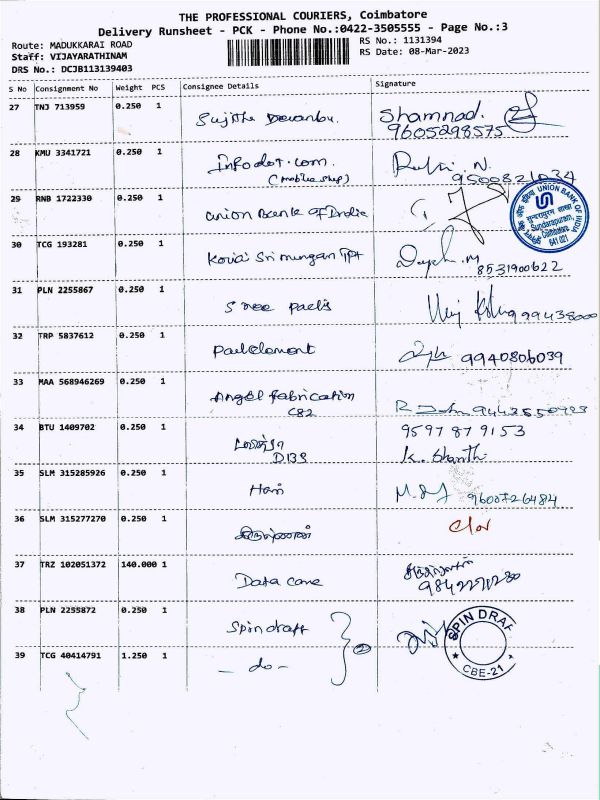 THE PROFESSIONAL COURIERS, Coimbatore
Delivery Runsheet - PCK - Phone No.:0422-3505555 - Page No.:3
Route: MADUKKARAI ROAD
Staff: VIJAYARATHINAM
DRS No.: DCJB113139403
RS No.: 1131394
RS Date: 08-Mar-2023
S No Consignment No Weight PCS Consignee Details Signature
27 TNJ 713959 0.250 1 Shamnad.
9605298575
28 KMU 3341721 0.250 1 Infodot.com.
(mobile shop) 9500821034
29 RNB 1722330 0.250 1 union Bank of India
UNION BANK OF INDIA
Sundarapuram,
Coimbatore
641 021
30 TCG 193281 0.250 1 Kovai Sri murugan TPT
8531900622
31 PLN 2255867 0.250 1 Sree
32 TRP 5837612 0.250 1 9940806039
33 MAA 568946269 0.250 1 Angel fabrication
C82
34 BTU 1409702 0.250 1 9597879153
K. Shanth
35 SLM 315285926 0.250 1 Hari 9600726484
36 SLM 315277270 0.250 1
37 TRZ 102051372 140.000 1 Data
38 PLN 2255872 0.250 1 Spindraft
SPIN DRAF
CBE-21
39 TCG 40414791 1.250 1 - do -